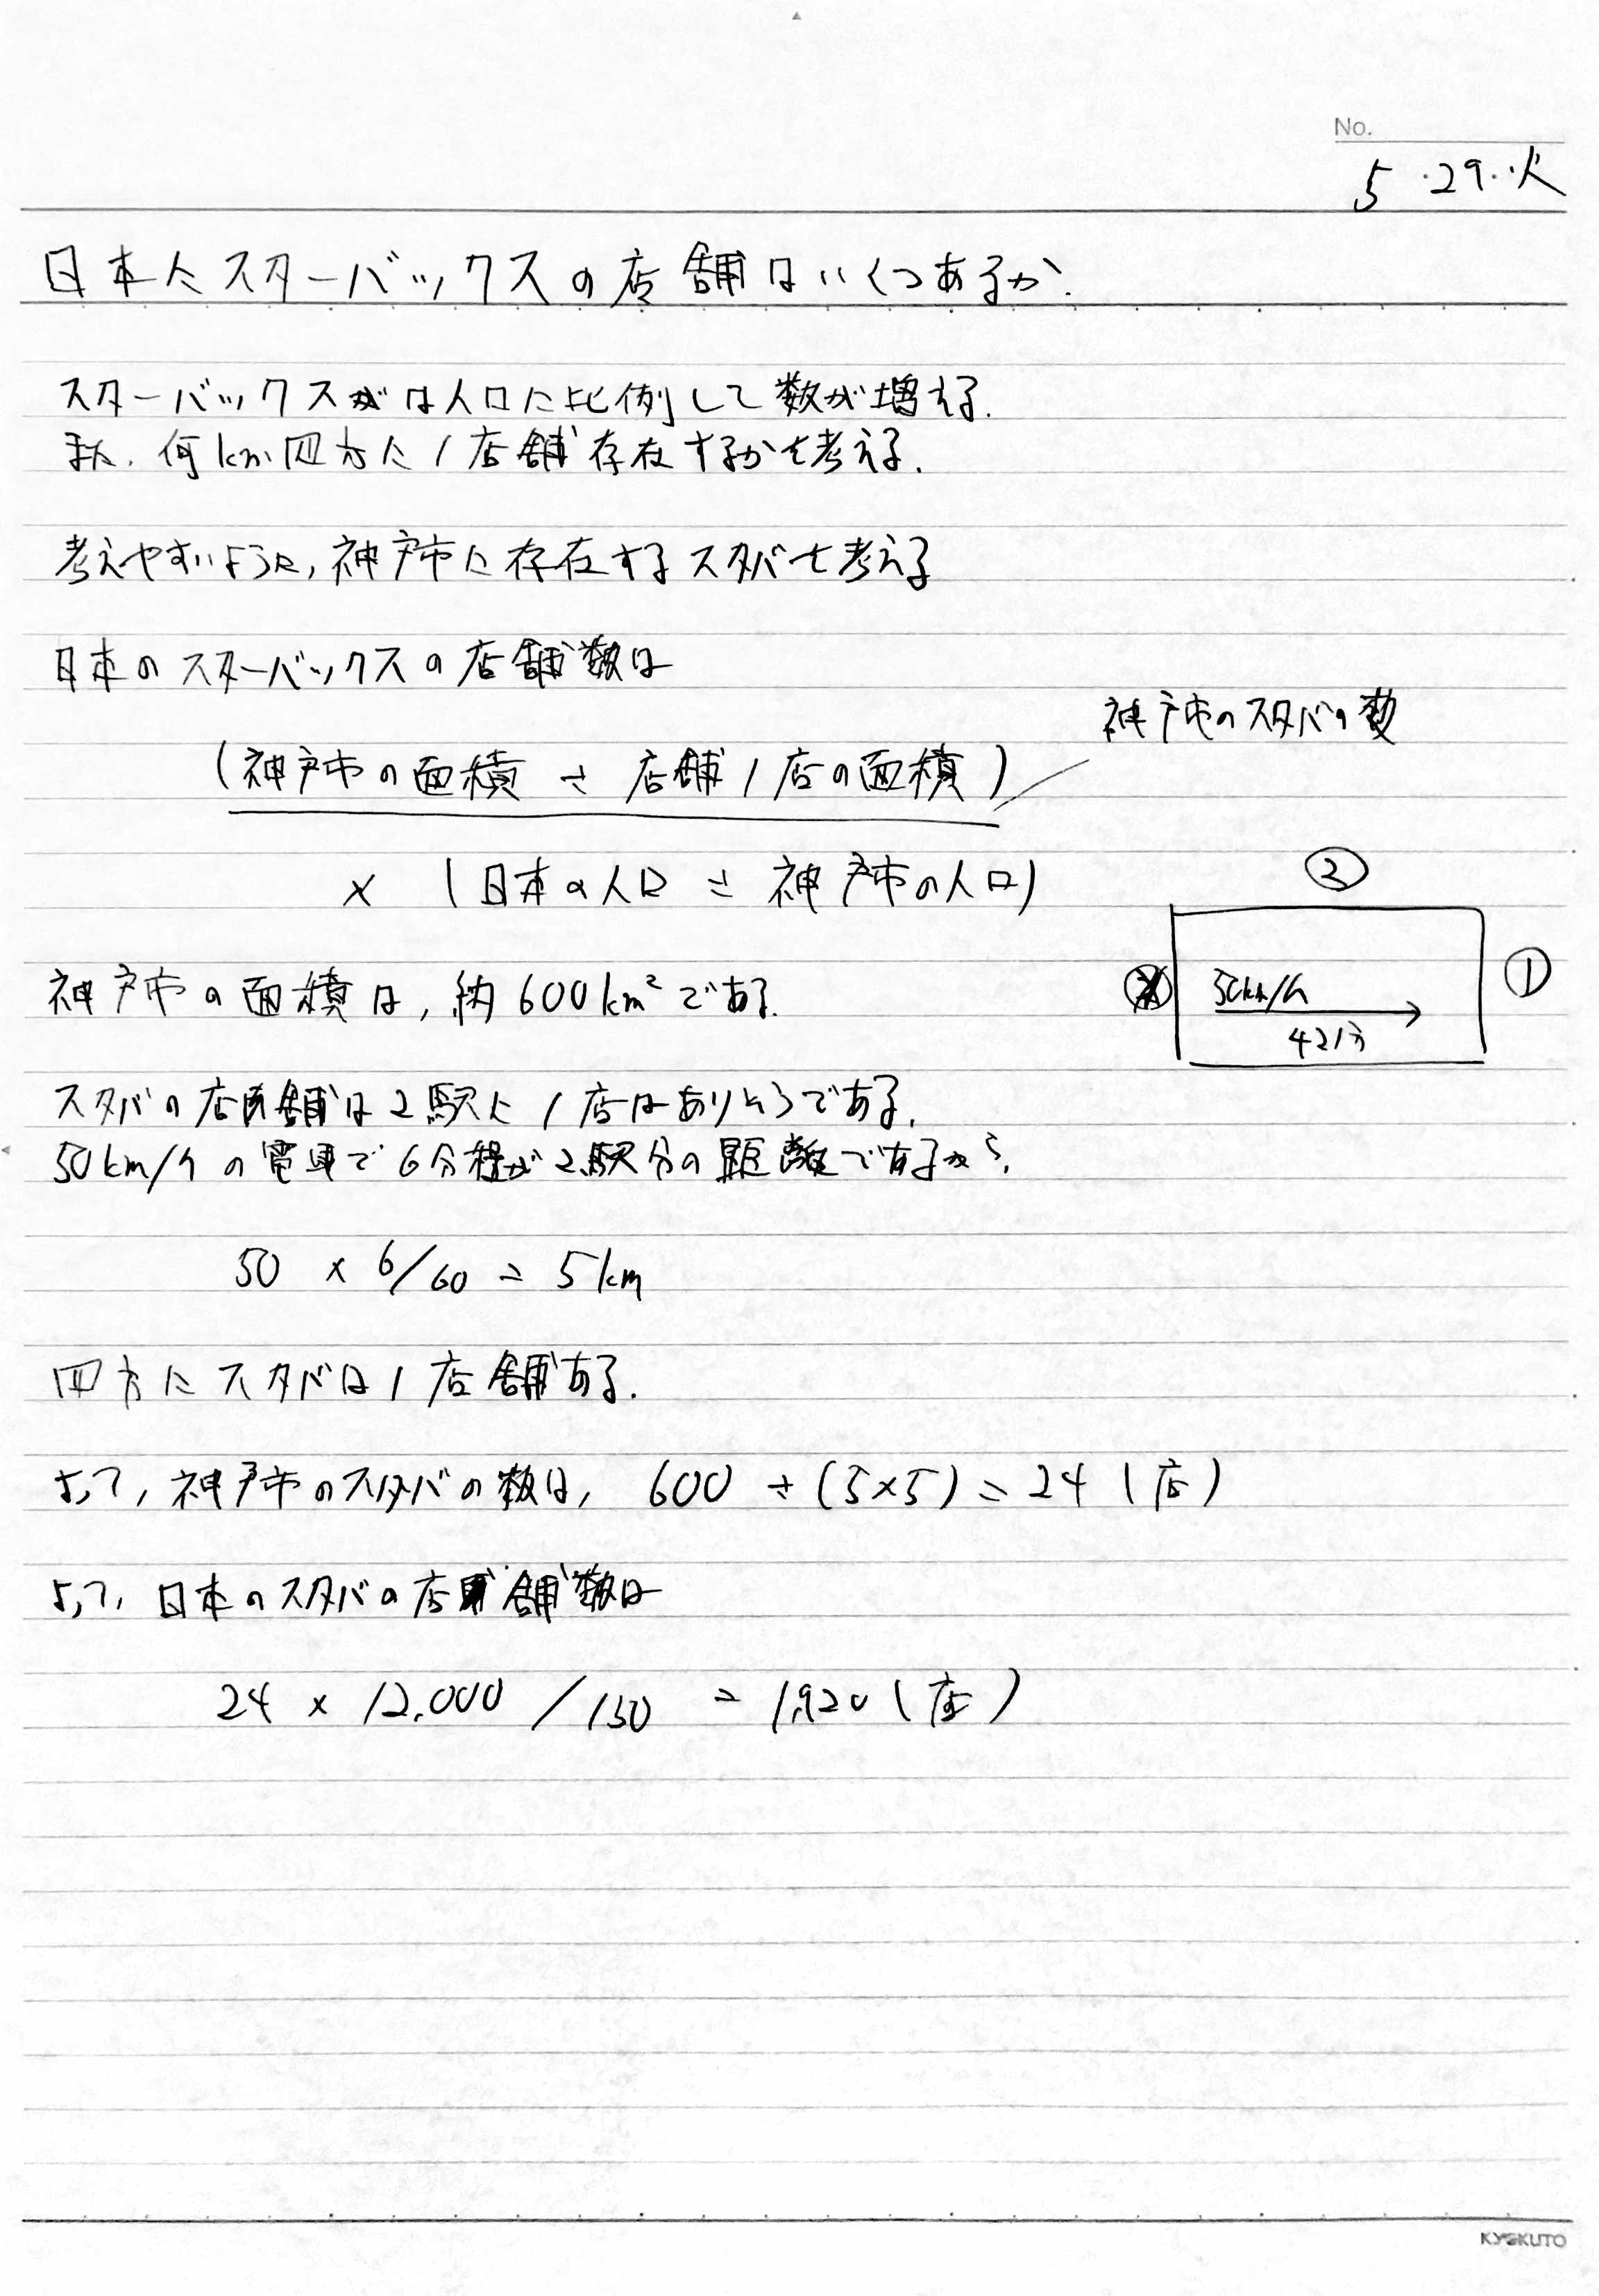 No.
5・29・火
日本にスターバックスの店舗はいくつあるか.
スターバックスは人口に比例して数が増える.
また、何km四方に1店舗存在するかを考える.
考えやすいように,神戸市に存在するスタバを考える
日本のスターバックスの店舗数は
神戸市のスタバの数
(神戸市の面積 ÷ 店舗1店の面積)
× (日本の人口 ÷ 神戸市の人口)
②
神戸市の面積は,約600km²である.
50km/h
①
42分
スタバの店舗は2駅に1店はありそうである.
50km/hの電車で6分程が2駅分の距離であるから,
50 × 6/60 = 5km
四方にスタバは1店舗ある.
よって,神戸市のスタバの数は, 600 ÷ (5×5) = 24 (店)
よって,日本のスタバの店舗数は
24 × 12,000 / 150 = 1,920 (店)
KYOKUTO